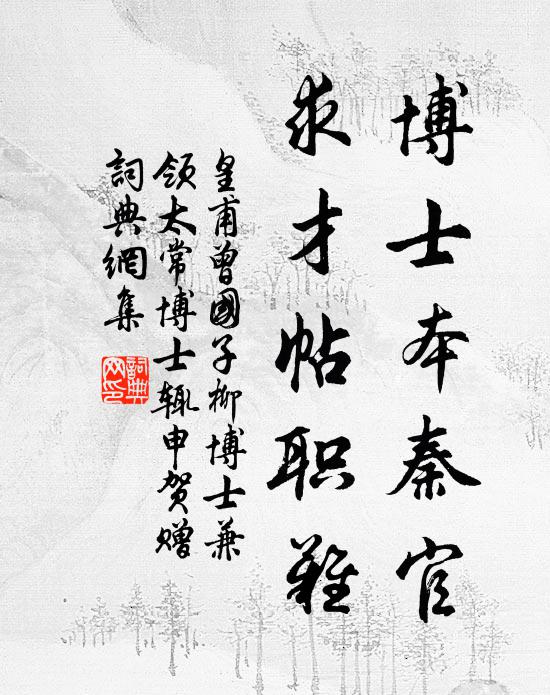 博士本秦官
求才帖职難
皇甫曾國子柳博士兼
领太常博士辄申贺赠
詞典網集
詞典
网印